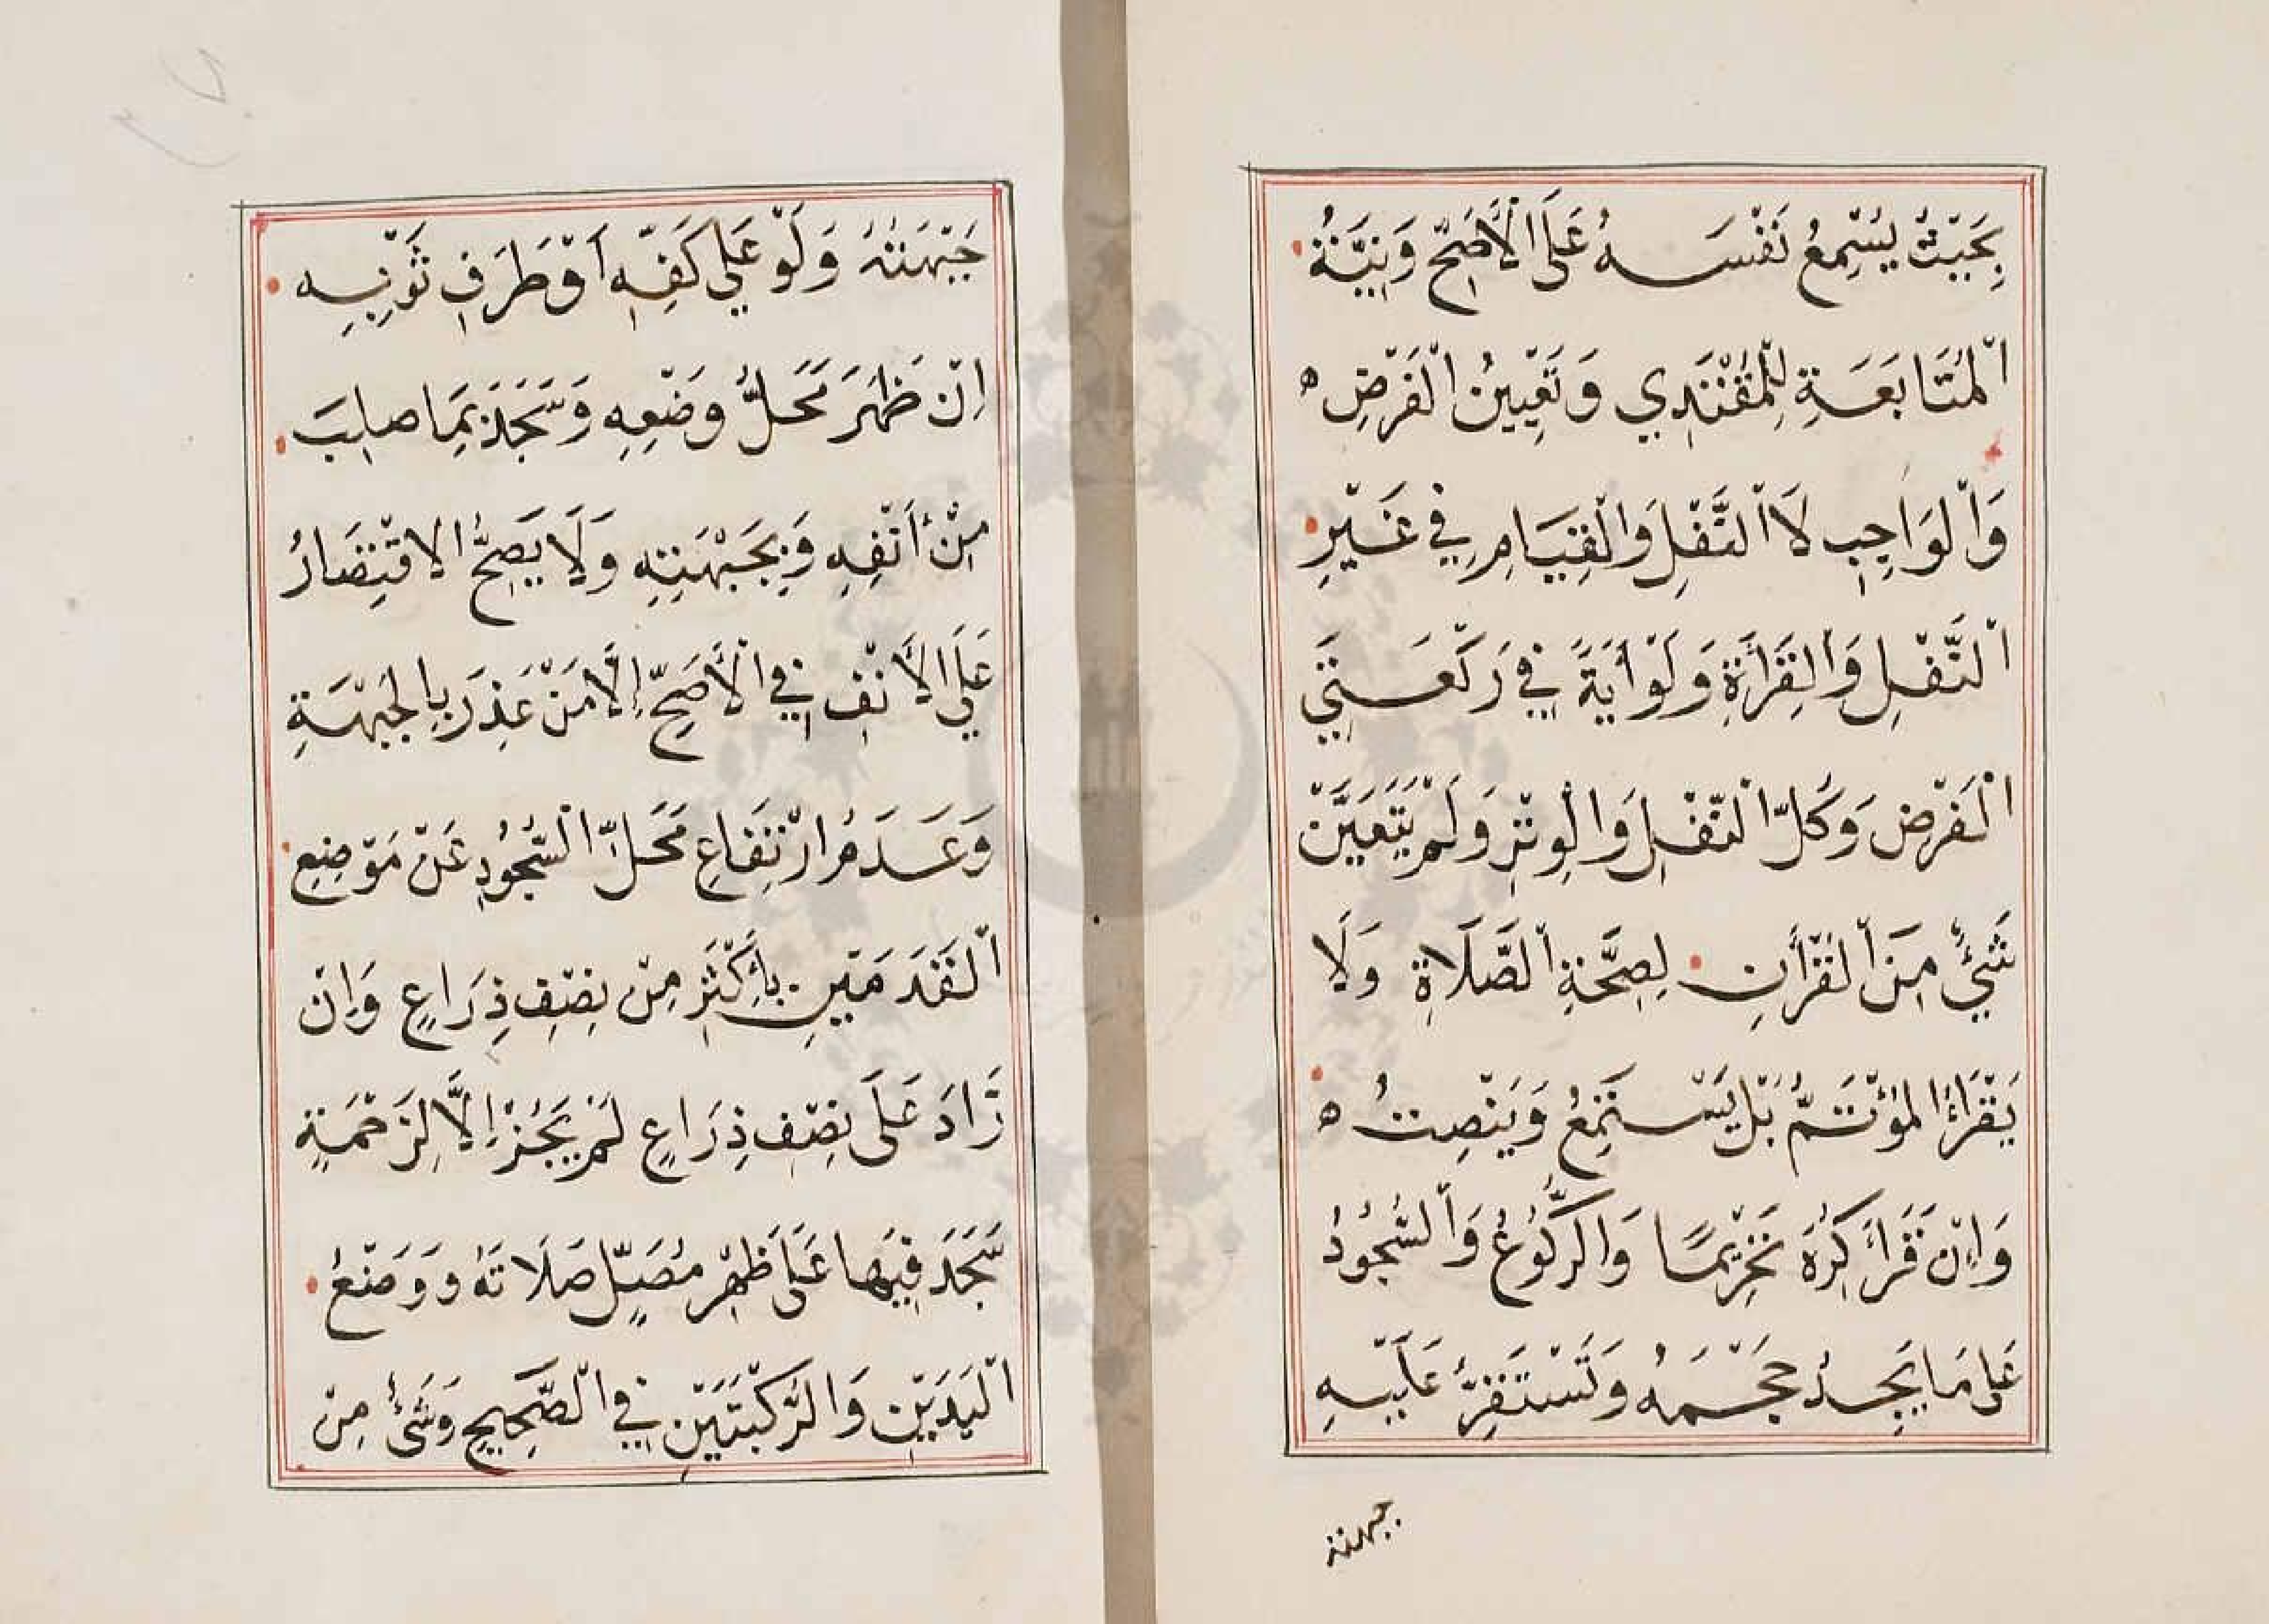 بِحَيْثُ يُسْمِعُ نَفْسَهُ عَلَى الْأَصَحِّ وَنِيَّةُ
الْمُتَابَعَةِ لِلْمُقْتَدِي وَتَعْيِينُ الْفَرْضِ ه
وَالْوَاجِبِ لَا النَّفْلِ وَالْقِيَامِ فِي غَيْرِ
النَّفْلِ وَالْقِرَأَةِ وَلَوْ أٰيَةً فِي رَكْعَتَيِ
الْفَرْضِ وَكُلِّ النَّفْلِ وَالْوِتْرِ وَلَمْ يَتَعَيَّنْ
شَئٌ مِنَ الْقُرْأٰنِ لِصِحَّةِ الصَّلَاةِ وَلَا
يَقْرَاءُ الْمُؤْتَمُّ بَلْ يَسْتَمِعُ وَيَنْصِتُ ه
وَاِنْ قَرَأَ كُرِهَ تَحْرِيْمًا وَالرُّكُوْعُ وَالسُّجُوْدُ
عَلَى مَا يَجِدُ حَجْمَهُ وَتَسْتَقِرُّ عَلَيْهِ
جبهته
جَبْهَتُهُ وَلَوْ عَلي كَفِّهِ اَوْ طَرَفِ ثَوْبِهِ
اِنْ ظَهَرَ مَحَلُّ وَضْعِهِ وَسَجَدَ بِمَا صلبَ
مِنْ أَنْفِهِ وَبِجَبْهَتِهِ وَلَا يَصِحُّ الاقْتِصَارُ
عَلَي الْأَنْفِ فِي الْأَصَحِّ اِلَّا مَنْ عَذِرَ بِالْجَبْهَةِ
وَعَدَمُ ارْتِفَاعِ مَحَلِّ السُّجُوْدِ عَنْ مَوْضِعِ
الْقَدَمَيْنِ بِأَكْثَرَ مِنْ نِصْفِ ذِرَاعٍ وَاِنْ
زَادَ عَلَى نِصْفِ ذِرَاعٍ لَمْ يَجُزْ اِلَّا لِزَحْمَةٍ
سَجَدَ فِيْهَا عَلَى ظَهْرِ مُصَلٍّ صَلَاتَهُ وَوَضْعُ
الْيَدَيْنِ وَالرُّكْبَتَيْنِ فِي الْصَّحِيحِ وَشَئٍ مِنْ